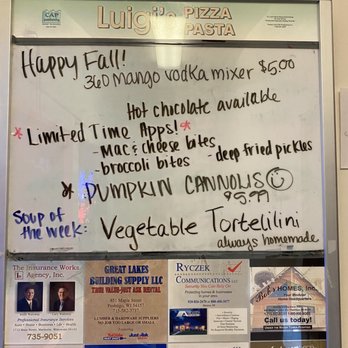 CAP
Luigi's PIZZA
PASTA
Happy Fall!
360 Mango vodka mixer $5.00
Hot chocolate available
* Limited Time Apps! *
- Mac & cheese bites
- broccoli bites
- deep fried pickles
* PUMPKIN CANNOLIS
$5.99
Soup of the week:
Vegetable Tortelilini
always homemade
The Insurance Works
Agency, Inc.
735-9051
GREAT LAKES
BUILDING SUPPLY LLC
TRUE VALUE-JUST ASK RENTAL
RYCZEK
COMMUNICATIONS LLC
Bob's HOMES, INC.
Call us today!